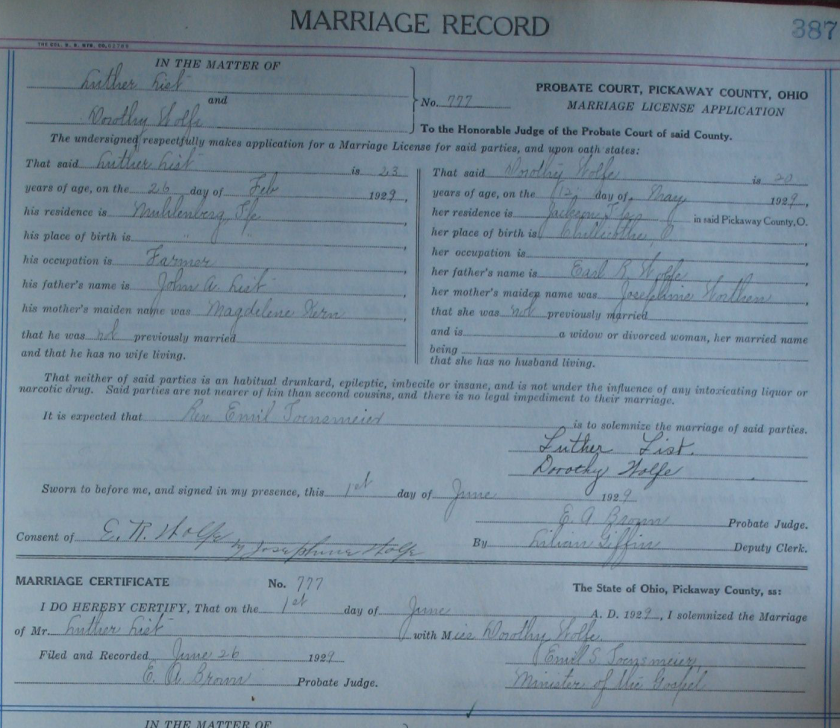 MARRIAGE RECORD
387
IN THE MATTER OF
Luther List
and
Dorothy Wolfe
No. 777
PROBATE COURT, PICKAWAY COUNTY, OHIO
MARRIAGE LICENSE APPLICATION
To the Honorable Judge of the Probate Court of said County.
The undersigned respectfully makes application for a Marriage License for said parties, and upon oath states:
That said Luther List is 23
years of age, on the 26 day of Feb 1929,
his residence is Muhlenberg Tp.
his place of birth is "
his occupation is Farmer
his father's name is John A. List
his mother's maiden name was Magdelene Kern
that he was not previously married
and that he has no wife living.
That said Dorothy Wolfe is 20
years of age, on the 12 day of May 1929,
her residence is Jackson in said Pickaway County, O.
her place of birth is Chillicothe, O
her occupation is
her father's name is Earl R Wolfe
her mother's maiden name was Josephine
that she was not previously married
and is a widow or divorced woman, her married name
being
that she has no husband living.
That neither of said parties is an habitual drunkard, epileptic, imbecile or insane, and is not under the influence of any intoxicating liquor or
narcotic drug. Said parties are not nearer of kin than second cousins, and there is no legal impediment to their marriage.
It is expected that Rev. Emil Toensmeier is to solemnize the marriage of said parties.
Luther List.
Dorothy Wolfe
Sworn to before me, and signed in my presence, this 1st day of June 1929
E. A Brown Probate Judge.
Consent of E. R. Wolfe by Josephine Wolfe
By Lilian Giffin Deputy Clerk.
MARRIAGE CERTIFICATE No. 777 The State of Ohio, Pickaway County, ss:
I DO HEREBY CERTIFY, That on the 1st day of June A. D. 1929, I solemnized the Marriage
of Mr. Luther List with Miss Dorothy Wolfe
Filed and Recorded June 26 1929
Emil S. Toensmeier,
E. A. Brown Probate Judge.
Minister of the Gospel
IN THE MATTER OF